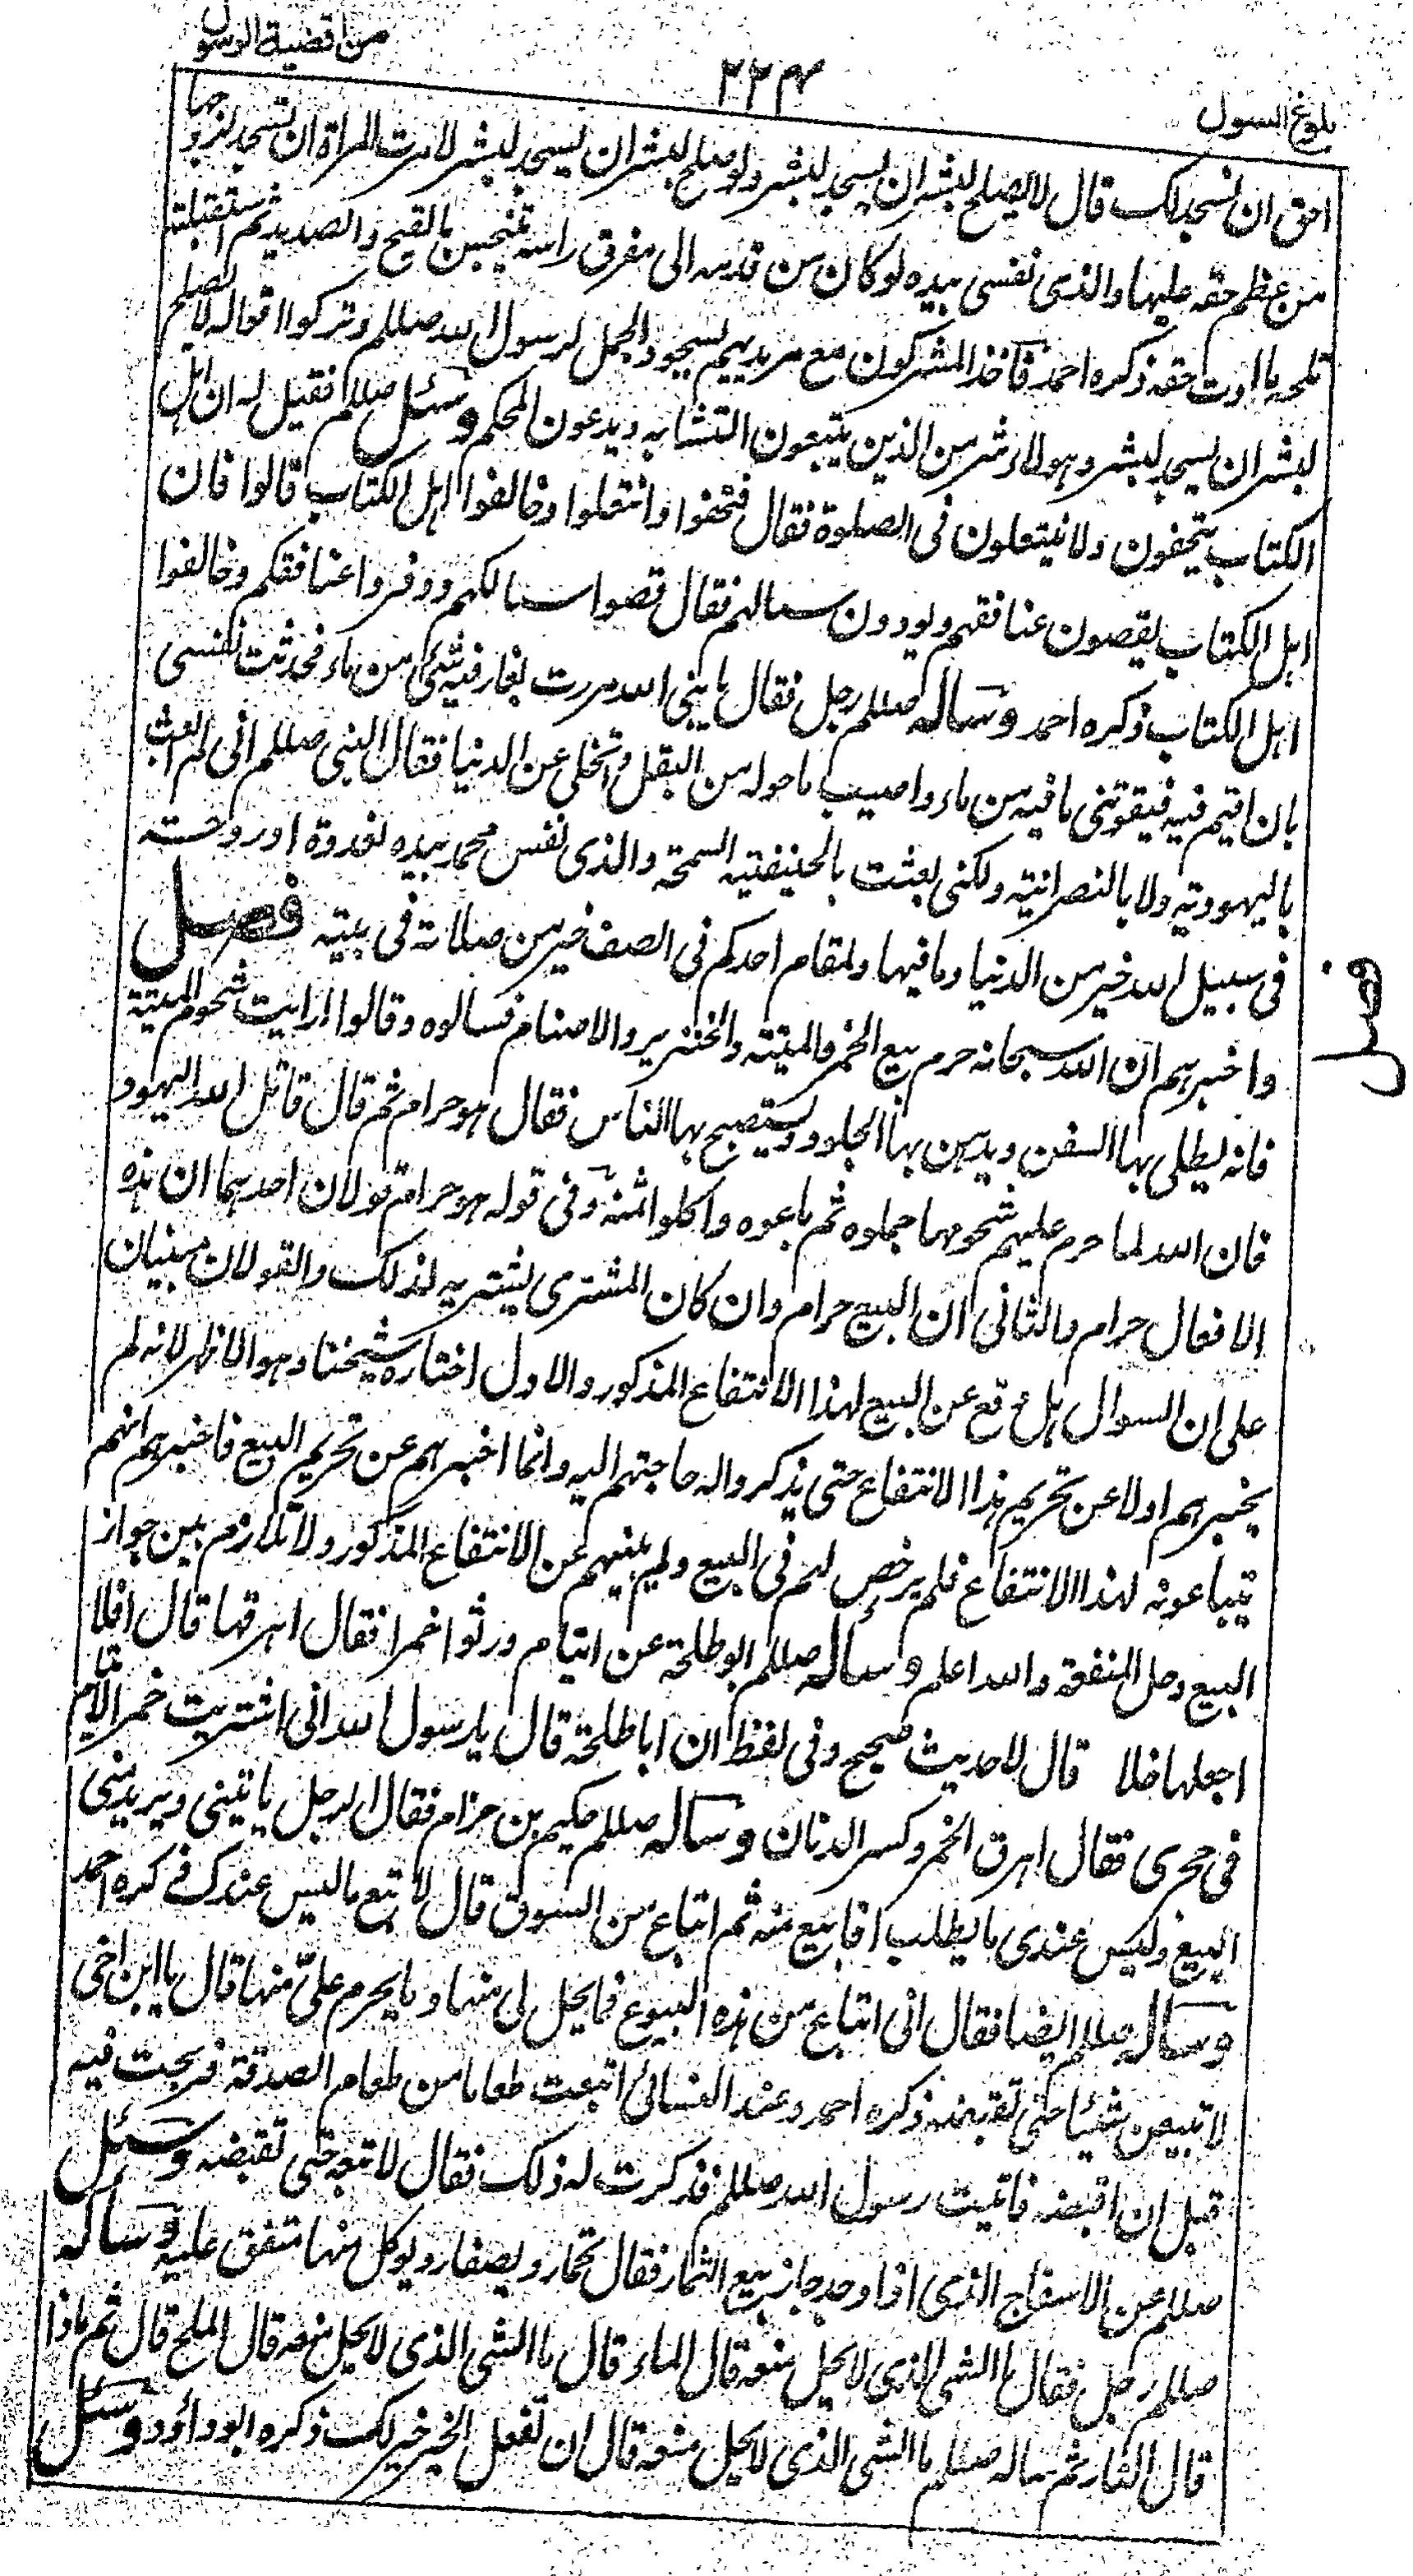 من اقضية الرسول
٢٢٤
بلوغ السول
احق ان نسجد لك قال لا يصلح لبشر ان يسجد لبشر ولو صلح لبشر ان يسجد لبشر لامرت المراة ان تسجد لزوجها
من عظم حقه عليها والذى نفسى بيده لو كان من قدمه الى مفرق راسه تنبجس بالقيح والصديد ثم استقبلته
تلحسه ما ادت حقه ذكره احمد فاخذ المشركون مع مريديهم بسجود الجمل لرسول الله صللم وتركوا اقواله لا يصلح
لبشر ان يسجد لبشر وهولاء شر من الذين يتبعون المتشابه ويدعون المحكم وسئل صللم فقيل له ان اهل
الكتاب يتحفون ولا ينتعلون فى الصلوة فقال فتحفوا وانتعلوا وخالفوا اهل الكتاب قالوا فان
اهل الكتاب يقصون عنافقهم ويودون سبالهم فقال قصوا سبالكم ووفروا عنافقكم وخالفوا
اهل الكتاب ذكره احمد وساله صللم رجل فقال يا نبى الله مررت بغار فيه شئ من ماء فحدثت نفسى
بان اقيم فيه فيقوتنى ما فيه من ماء واصيب ما حوله من البقل واتخلى عن الدنيا فقال النبى صللم انى لم ابعث
باليهودية ولا بالنصرانية ولكنى بعثت بالحنيفية السمحة والذى نفس محمد بيده لغدوة او روحة
فى سبيل الله خير من الدنيا وما فيها ولمقام احدكم فى الصف خير من صلاته فى بيته فصل
فصل
واخبرهم ان الله سبحانه حرم بيع الخمر والميتة والخنزير والاصنام فسالوه وقالوا ارايت شحوم الميتة
فانه يطلى بها السفن ويدهن بها الجلود ويستصبح بها الناس فقال هو حرام ثم قال قاتل الله اليهود
فان الله لما حرم عليهم شحومها جملوه ثم باعوه واكلوا ثمنه وفى قوله هو حرام قولان احدهما ان هذه
الافعال حرام والثانى ان البيع حرام وان كان المشترى يشتريه لذلك والقولان مبنيان
على ان السوال هل وقع عن البيع لهذا الانتفاع المذكور والاول اختاره شيخنا وهو الاظهر لانه لم
يخبرهم اولا عن تحريم هذا الانتفاع حتى يذكروا له حاجتهم اليه وانما اخبرهم عن تحريم البيع فاخبرهم انهم
يتباعونه لهذا الانتفاع فلم يرخص لهم فى البيع ولم ينههم عن الانتفاع المذكور ولا تلازم بين جواز
البيع وحل المنفعة والله اعلم وساله صللم ابو طلحة عن ايتام ورثوا خمرا فقال اهرقها قال افلا
اجعلها خلا قال لا حديث صحيح وفى لفظ ان ابا طلحة قال يا رسول الله انى اشتريت خمرا لايتام
فى حجرى فقال اهرق الخمر وكسر الدنان وساله صللم حكيم بن حزام فقال الرجل ياتينى ويريد منى
البيع وليس عندى ما يطلب افابيع منه ثم ابتاع من السوق قال لا تبع ما ليس عندك ذكره احمد
وساله صللم ايضا فقال انى ابتاع من هذه البيوع فما يحل لى منها وما يحرم علىّ منها قال يا ابن اخى
لا تبيعن شيئا حتى تقبضه ذكره احمد وعند النسائى ابتعت طعاما من طعام الصدقة فربحت فيه
قبل ان اقبضه فاتيت رسول الله صللم فذكرت له ذلك فقال لا تبعه حتى تقبضه وسئل
صللم عن الاسفاح الذى اذا وجد جاز بيع الثمار فقال تحمار ويصفار ويوكل منها متفق عليه وساله
صللم رجل فقال ما الشى الذى لا يحل منعه قال الماء قال ما الشى الذى لا يحل منعه قال الملح قال ثم ماذا
قال النار ثم ساله صللم ما الشى الذى لا يحل منعه قال ان تفعل الخير خير لك ذكره ابو داؤد وسئل